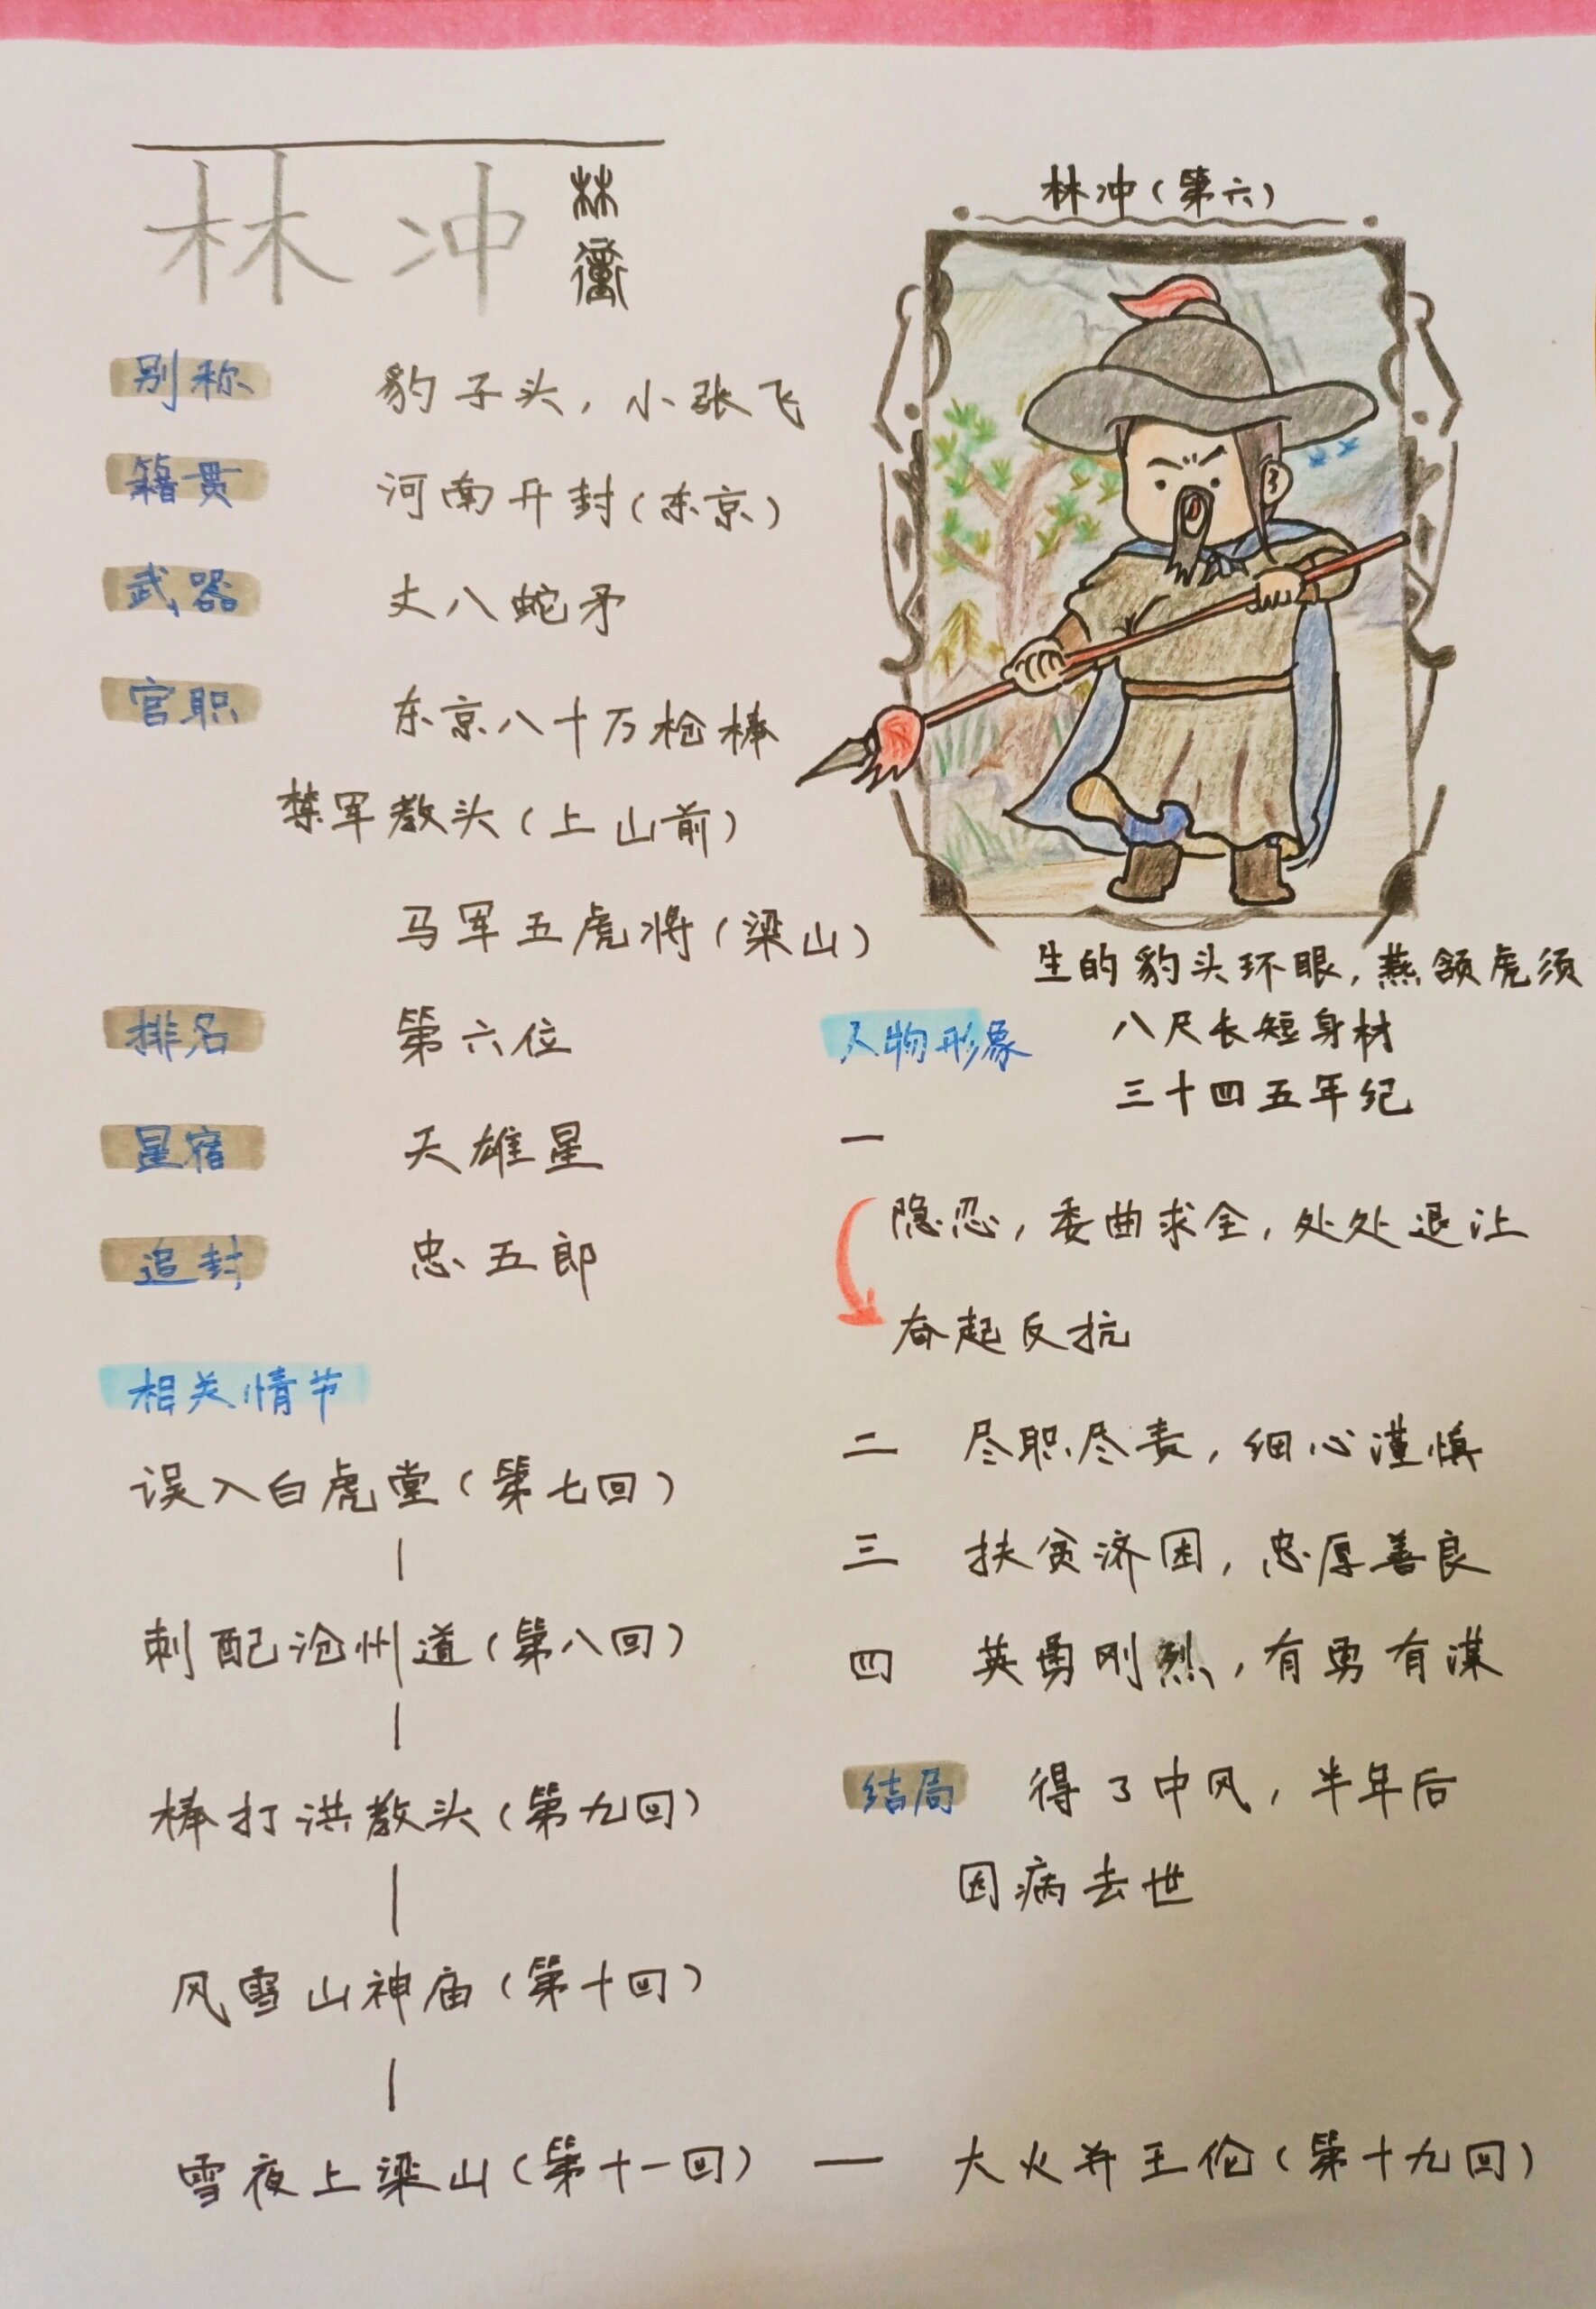 林冲 林衝
别称 豹子头，小张飞
籍贯 河南开封（东京）
武器 丈八蛇矛
官职 东京八十万枪棒
禁军教头（上山前）
马军五虎将（梁山）
排名 第六位
星宿 天雄星
追封 忠五郎
相关情节
误入白虎堂（第七回）
刺配沧州道（第八回）
棒打洪教头（第九回）
风雪山神庙（第十回）
雪夜上梁山（第十一回）— 大火并王伦（第十九回）
林冲（第六）
生的豹头环眼，燕颔虎须
八尺长短身材
三十四五年纪
人物形象
一
隐忍，委曲求全，处处退让
奋起反抗
二 尽职尽责，细心谨慎
三 扶贫济困，忠厚善良
四 英勇刚烈，有勇有谋
结局 得了中风，半年后
因病去世